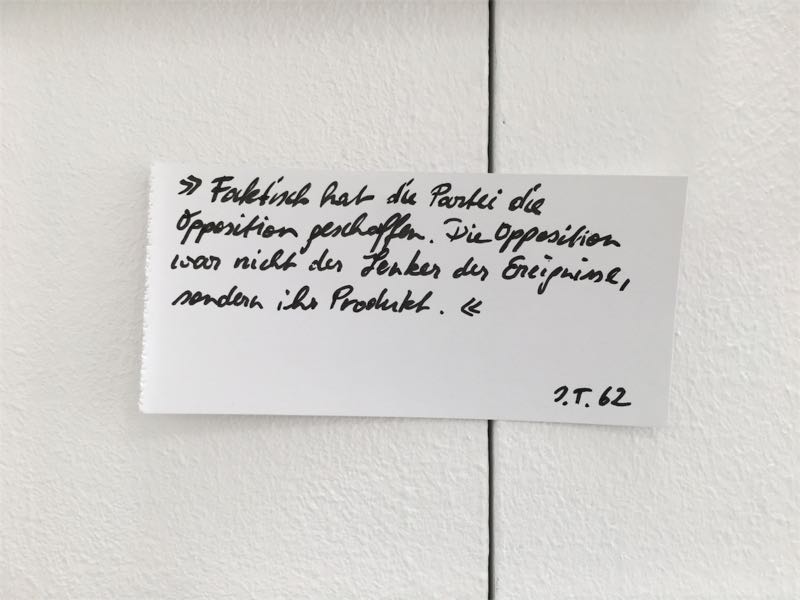 » Faktisch hat die Partei die
Opposition geschaffen. Die Opposition
war nicht der Lenker der Ereignisse,
sondern ihr Produkt. «
J.T. 62